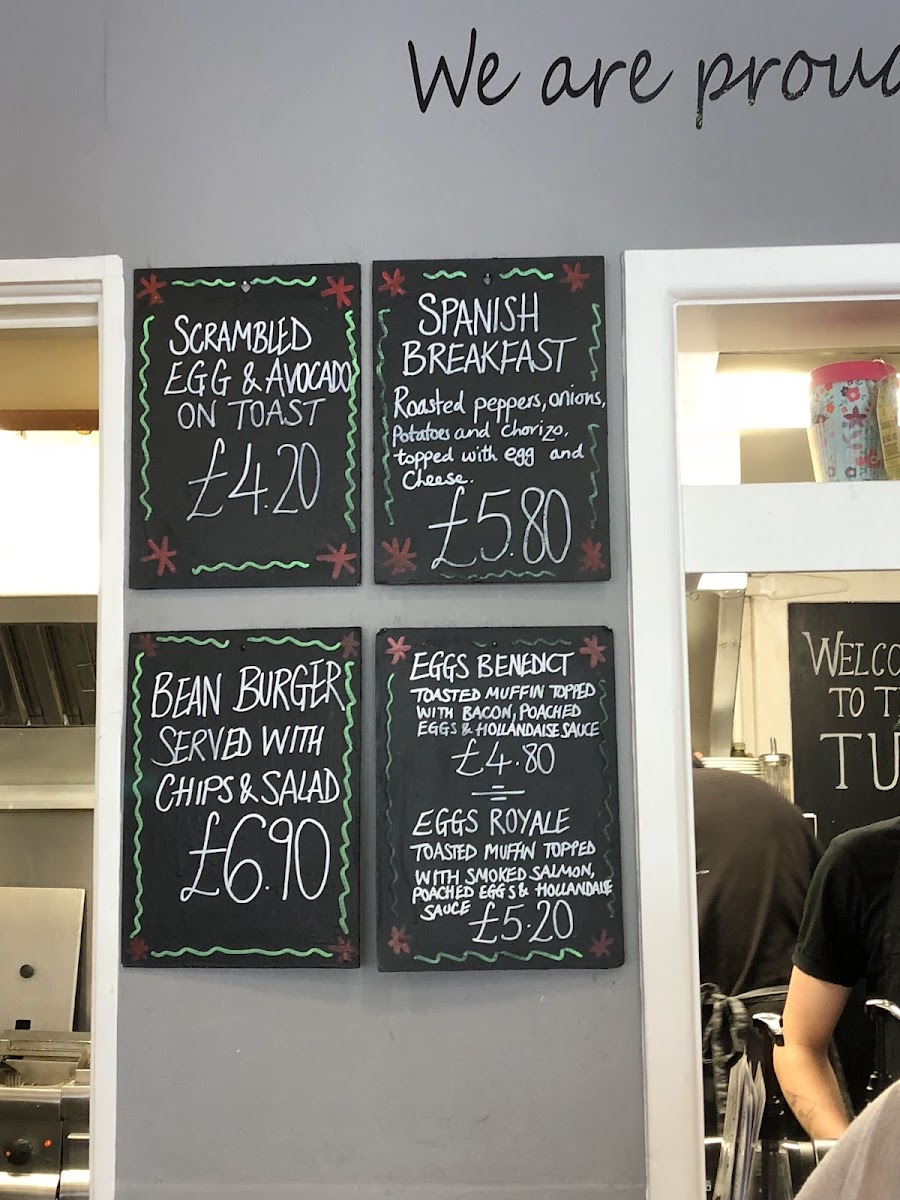 We are proud
SCRAMBLED
EGG & AVOCADO
ON TOAST
£4.20
SPANISH
BREAKFAST
Roasted peppers, onions,
Potatoes and chorizo,
topped with egg and
Cheese.
£5.80
BEAN BURGER
SERVED WITH
CHIPS & SALAD
£6.90
EGGS BENEDICT
TOASTED MUFFIN TOPPED
WITH BACON, POACHED
EGGS & HOLLANDAISE SAUCE
£4.80
EGGS ROYALE
TOASTED MUFFIN TOPPED
WITH SMOKED SALMON,
POACHED EGGS & HOLLANDAISE
SAUCE £5.20
WELCO
TO T
TU